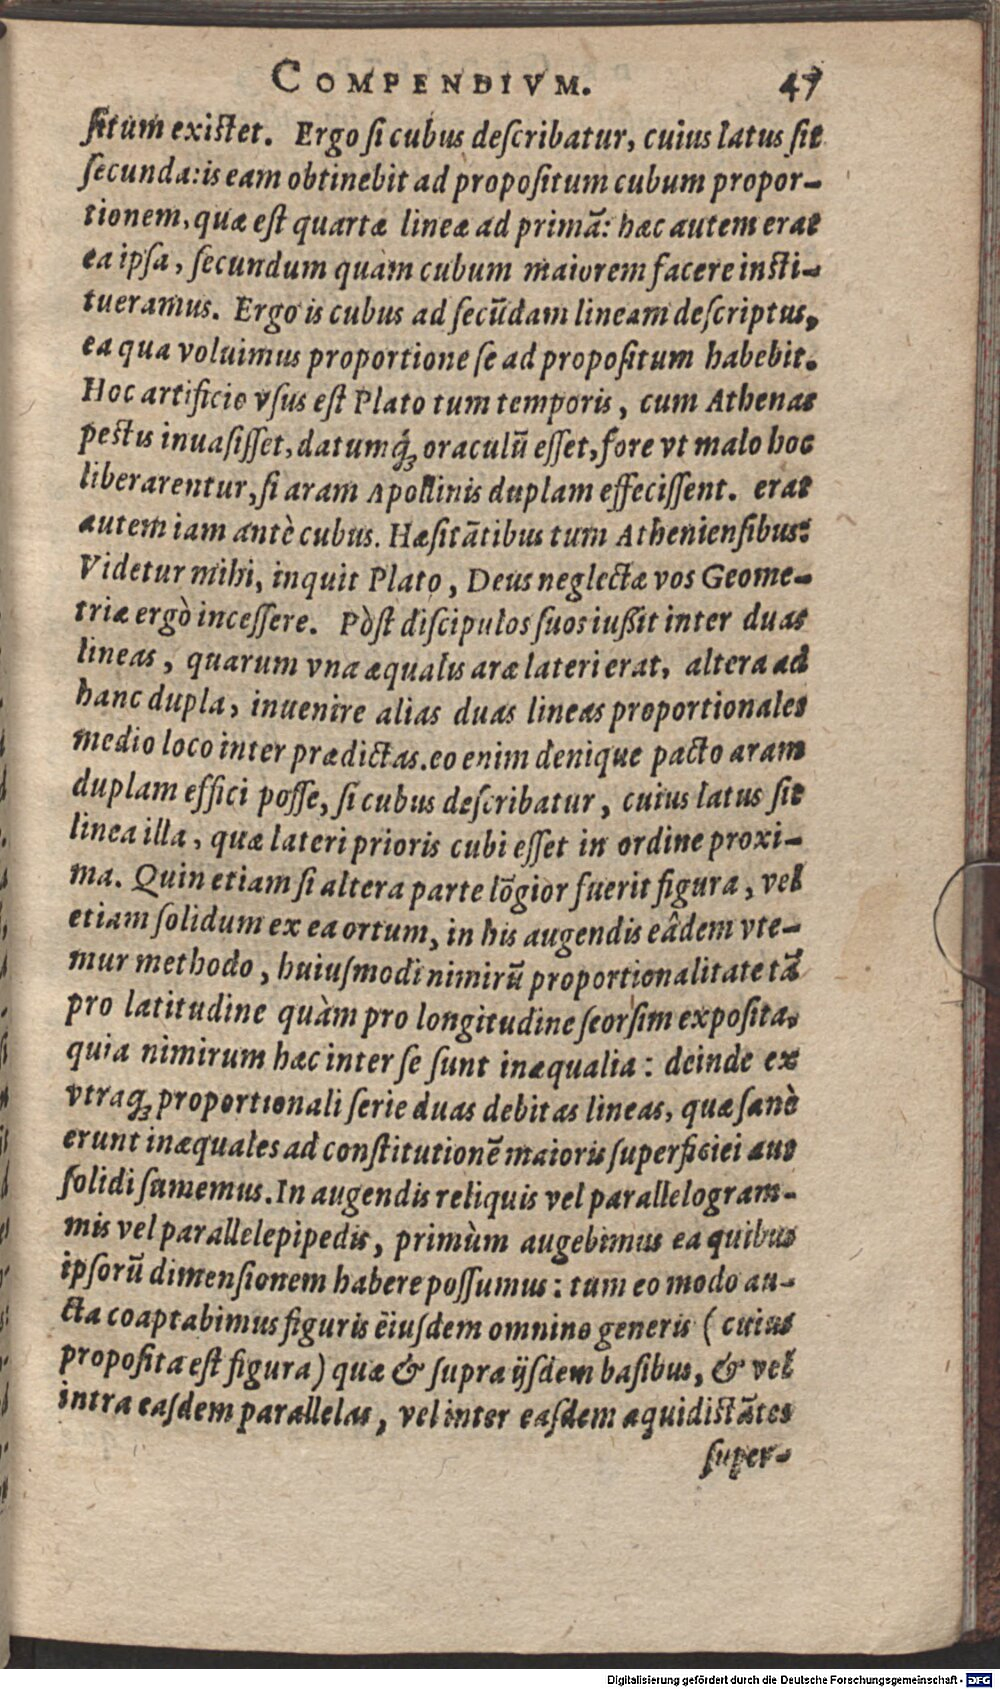 COMPENDIVM. 47
ſitum exiſtet. Ergo ſi cubus deſcribatur, cuius latus ſit
ſecunda: is eam obtinebit ad propoſitum cubum propor-
tionem, quæ eſt quartæ lineæ ad primã: hæc autem erat
ea ipſa, ſecundum quam cubum maiorem facere inſti-
tueramus. Ergo is cubus ad ſecũdam lineam deſcriptus,
ea qua voluimus proportione ſe ad propoſitum habebit.
Hoc artificio vſus eſt Plato tum temporis, cum Athenas
peſtis inuaſiſſet, datumq́ꝫ oraculũ eſſet, fore vt malo hoc
liberarentur, ſi aram Apollinis duplam effeciſſent. erat
autem iam antè cubus. Hæſitãtibus tum Athenienſibus:
Videtur mihi, inquit Plato, Deus neglectæ vos Geome-
triæ ergò inceſſere. Pòſt diſcipulos ſuos iußit inter duas
lineas, quarum vna æqualis aræ lateri erat, altera ad
hanc dupla, inuenire alias duas lineas proportionales
medio loco inter prædictas. eo enim denique pacto aram
duplam effici poſſe, ſi cubus deſcribatur, cuius latus ſit
linea illa, quæ lateri prioris cubi eſſet in ordine proxi-
ma. Quin etiam ſi altera parte lõgior fuerit figura, vel
etiam ſolidum ex ea ortum, in his augendis eâdem vte-
mur methodo, huiuſmodi nimirũ proportionalitate tã
pro latitudine quàm pro longitudine ſeorſim expoſita,
quia nimirum hæc inter ſe ſunt inæqualia: deinde ex
vtraqꝫ proportionali ſerie duas debitas lineas, quæ ſanè
erunt inæquales ad conſtitutionẽ maioris ſuperficiei aut
ſolidi ſumemus. In augendis reliquis vel parallelogram-
mis vel parallelepipedis, primùm augebimus ea quibus
ipſorũ dimenſionem habere poſſumus: tum eo modo au-
cta coaptabimus figuris ëiuſdem omnino generis (cuius
propoſita eſt figura) quæ & ſupra ijſdem baſibus, & vel
intra eaſdem parallelas, vel inter eaſdem æquidiſtãtes
ſuper-
Digitalisierung gefördert durch die Deutsche Forschungsgemeinschaft - DFG